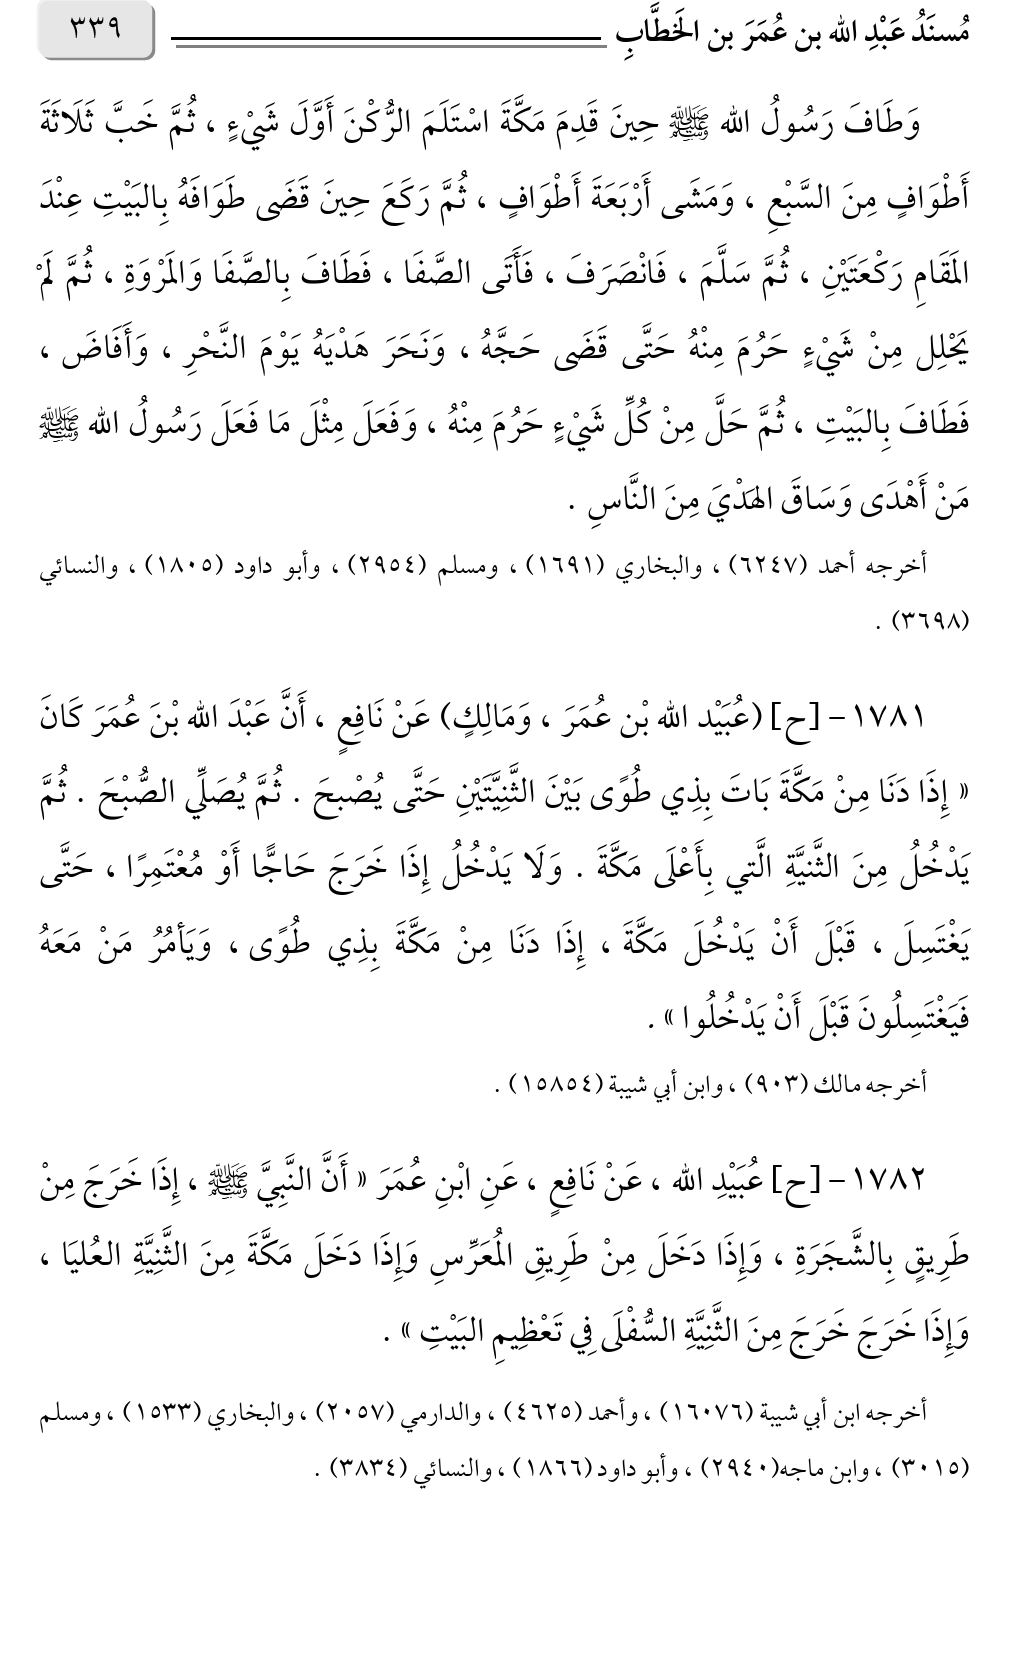 مُسنَدُ عَبْدِ الله بن عُمَرَ بن الخَطَّابِ ٣٣٩
وَطَافَ رَسُولُ الله ﷺ حِينَ قَدِمَ مَكَّةَ اسْتَلَمَ الرُّكْنَ أَوَّلَ شَيْءٍ ، ثُمَّ خَبَّ ثَلَاثَةَ
أَطْوَافٍ مِنَ السَّبْعِ ، وَمَشَى أَرْبَعَةَ أَطْوَافٍ ، ثُمَّ رَكَعَ حِينَ قَضَى طَوَافَهُ بِالبَيْتِ عِنْدَ
المَقَامِ رَكْعَتَيْنِ ، ثُمَّ سَلَّمَ ، فَانْصَرَفَ ، فَأَتَى الصَّفَا ، فَطَافَ بِالصَّفَا وَالمَرْوَةِ ، ثُمَّ لَمْ
يَحْلِل مِنْ شَيْءٍ حَرُمَ مِنْهُ حَتَّى قَضَى حَجَّهُ ، وَنَحَرَ هَدْيَهُ يَوْمَ النَّحْرِ ، وَأَفَاضَ ،
فَطَافَ بِالبَيْتِ ، ثُمَّ حَلَّ مِنْ كُلِّ شَيْءٍ حَرُمَ مِنْهُ ، وَفَعَلَ مِثْلَ مَا فَعَلَ رَسُولُ الله ﷺ
مَنْ أَهْدَى وَسَاقَ الهَدْيَ مِنَ النَّاسِ .
أخرجه أحمد (٦٢٤٧) ، والبخاري (١٦٩١) ، ومسلم (٢٩٥٤) ، وأبو داود (١٨٠٥) ، والنسائي
(٣٦٩٨) .
١٧٨١ - [ح] (عُبَيْد الله بْن عُمَرَ ، وَمَالِكٍ) عَنْ نَافِعٍ ، أَنَّ عَبْدَ الله بْنَ عُمَرَ كَانَ
« إِذَا دَنَا مِنْ مَكَّةَ بَاتَ بِذِي طُوًى بَيْنَ الثَّنِيَّتَيْنِ حَتَّى يُصْبحَ . ثُمَّ يُصَلِّي الصُّبْحَ . ثُمَّ
يَدْخُلُ مِنَ الثَّنِيَّةِ الَّتي بِأَعْلَى مَكَّةَ . وَلَا يَدْخُلُ إِذَا خَرَجَ حَاجًّا أَوْ مُعْتَمِرًا ، حَتَّى
يَغْتَسِلَ ، قَبْلَ أَنْ يَدْخُلَ مَكَّةَ ، إِذَا دَنَا مِنْ مَكَّةَ بِذِي طُوًى ، وَيَأمُرُ مَنْ مَعَهُ
فَيَغْتَسِلُونَ قَبْلَ أَنْ يَدْخُلُوا » .
أخرجه مالك (٩٠٣) ، وابن أبي شيبة (١٥٨٥٤) .
١٧٨٢ - [ح] عُبَيْدِ الله ، عَنْ نَافِعٍ ، عَنِ ابْنِ عُمَرَ « أَنَّ النَّبِيَّ ﷺ ، إِذَا خَرَجَ مِنْ
طَرِيقٍ بِالشَّجَرَةِ ، وَإِذَا دَخَلَ مِنْ طَرِيقِ المُعَرِّسِ وَإِذَا دَخَلَ مَكَّةَ مِنَ الثَّنِيَّةِ العُليَا ،
وَإِذَا خَرَجَ خَرَجَ مِنَ الثَّنِيَّةِ السُّفْلَى فِي تَعْظِيمِ البَيْتِ » .
أخرجه ابن أبي شيبة (١٦٠٧٦) ، وأحمد (٤٦٢٥) ، والدارمي (٢٠٥٧) ، والبخاري (١٥٣٣) ، ومسلم
(٣٠١٥) ، وابن ماجه(٢٩٤٠) ، وأبو داود (١٨٦٦) ، والنسائي (٣٨٣٤) .